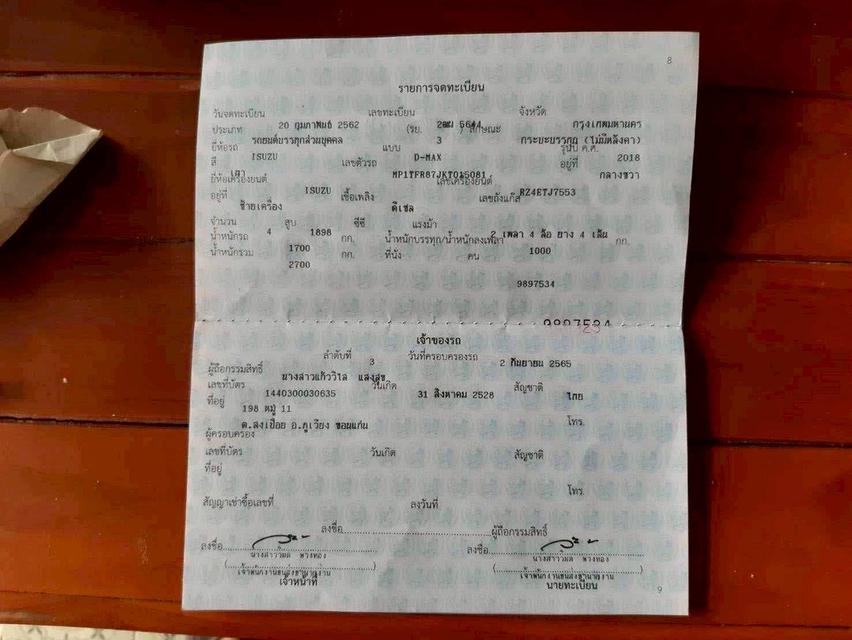 8
รายการจดทะเบียน
วันจดทะเบียน 20 กุมภาพันธ์ 2562 เลขทะเบียน 2ฒผ 5644 จังหวัด กรุงเทพมหานคร
ประเภท รถยนต์บรรทุกส่วนบุคคล (รย. 3 ) ลักษณะ กระบะบรรทุก (ไม่มีหลังคา)
ยี่ห้อรถ ISUZU แบบ D-MAX รุ่นปี ค.ศ. 2018
สี เทา เลขตัวรถ MP1TFR87JKT015081 อยู่ที่ กลางขวา
ยี่ห้อเครื่องยนต์ ISUZU เลขเครื่องยนต์ RZ4ETJ7553
อยู่ที่ ซ้ายเครื่อง เชื้อเพลิง ดีเซล เลขถังแก๊ส
จำนวน 4 สูบ 1898 ซีซี แรงม้า 2 เพลา 4 ล้อ ยาง 4 เส้น
น้ำหนักรถ 1700 กก. น้ำหนักบรรทุก/น้ำหนักลงเพลา 1000 กก.
น้ำหนักรวม 2700 กก. ที่นั่ง คน
9897534
9897534
เจ้าของรถ
ลำดับที่ 3 วันที่ครอบครองรถ 2 กันยายน 2565
ผู้ถือกรรมสิทธิ์ นางสาวแก้ววิไล แสงสุข
เลขที่บัตร 1440300030635 วันเกิด 31 สิงหาคม 2528 สัญชาติ ไทย
ที่อยู่ 198 หมู่ 11
ต.สงเปือย อ.ภูเวียง ขอนแก่น โทร.
ผู้ครอบครอง
เลขที่บัตร วันเกิด สัญชาติ
ที่อยู่
โทร.
สัญญาเช่าซื้อเลขที่ ลงวันที่
ลงชื่อ ผู้ถือกรรมสิทธิ์
ลงชื่อ ลงชื่อ
นางสาววิมล พวงทอง นางสาววิมล พวงทอง
(เจ้าพนักงานขนส่งชำนาญงาน) (เจ้าพนักงานขนส่งชำนาญงาน)
เจ้าหน้าที่ นายทะเบียน
9